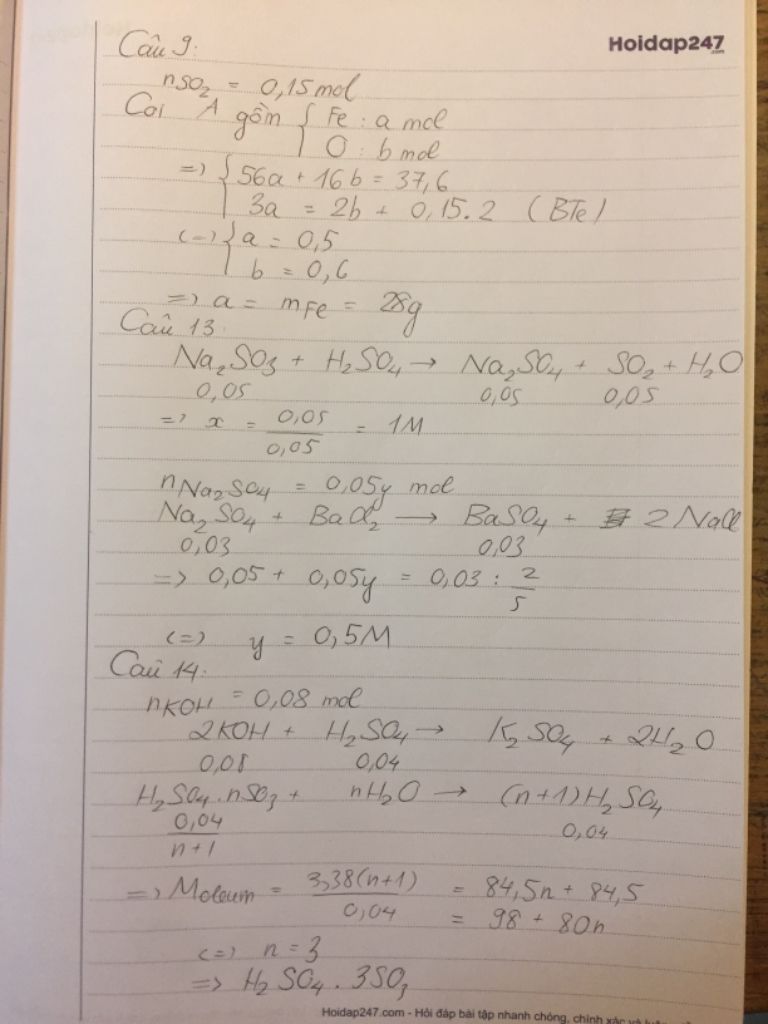 Câu 9:
Hoidap247.com
nSO₂ = 0,15 mol
Coi A gồm { Fe : a mol
O : b mol
=> { 56a + 16b = 37,6
3a = 2b + 0,15.2 (BTe)
(=) { a = 0,5
b = 0,6
=> a = mFe = 28g
Câu 13:
Na₂SO₃ + H₂SO₄ → Na₂SO₄ + SO₂ + H₂O
0,05 0,05 0,05
=> x = 0,05/0,05 = 1M
nNa₂SO₄ = 0,05y mol
Na₂SO₄ + BaCl₂ → BaSO₄ + 2NaCl
0,03 0,03
=> 0,05 + 0,05y = 0,03 : 2/5
(=) y = 0,5M
Câu 14:
nKOH = 0,08 mol
2KOH + H₂SO₄ → K₂SO₄ + 2H₂O
0,08 0,04
H₂SO₄.nSO₃ + nH₂O → (n+1)H₂SO₄
0,04/n+1 0,04
=> Moleum = 3,38(n+1)/0,04 = 84,5n + 84,5
= 98 + 80n
(=) n = 3
=> H₂SO₄.3SO₃
Hoidap247.com - Hỏi đáp bài tập nhanh chóng, chính xác và